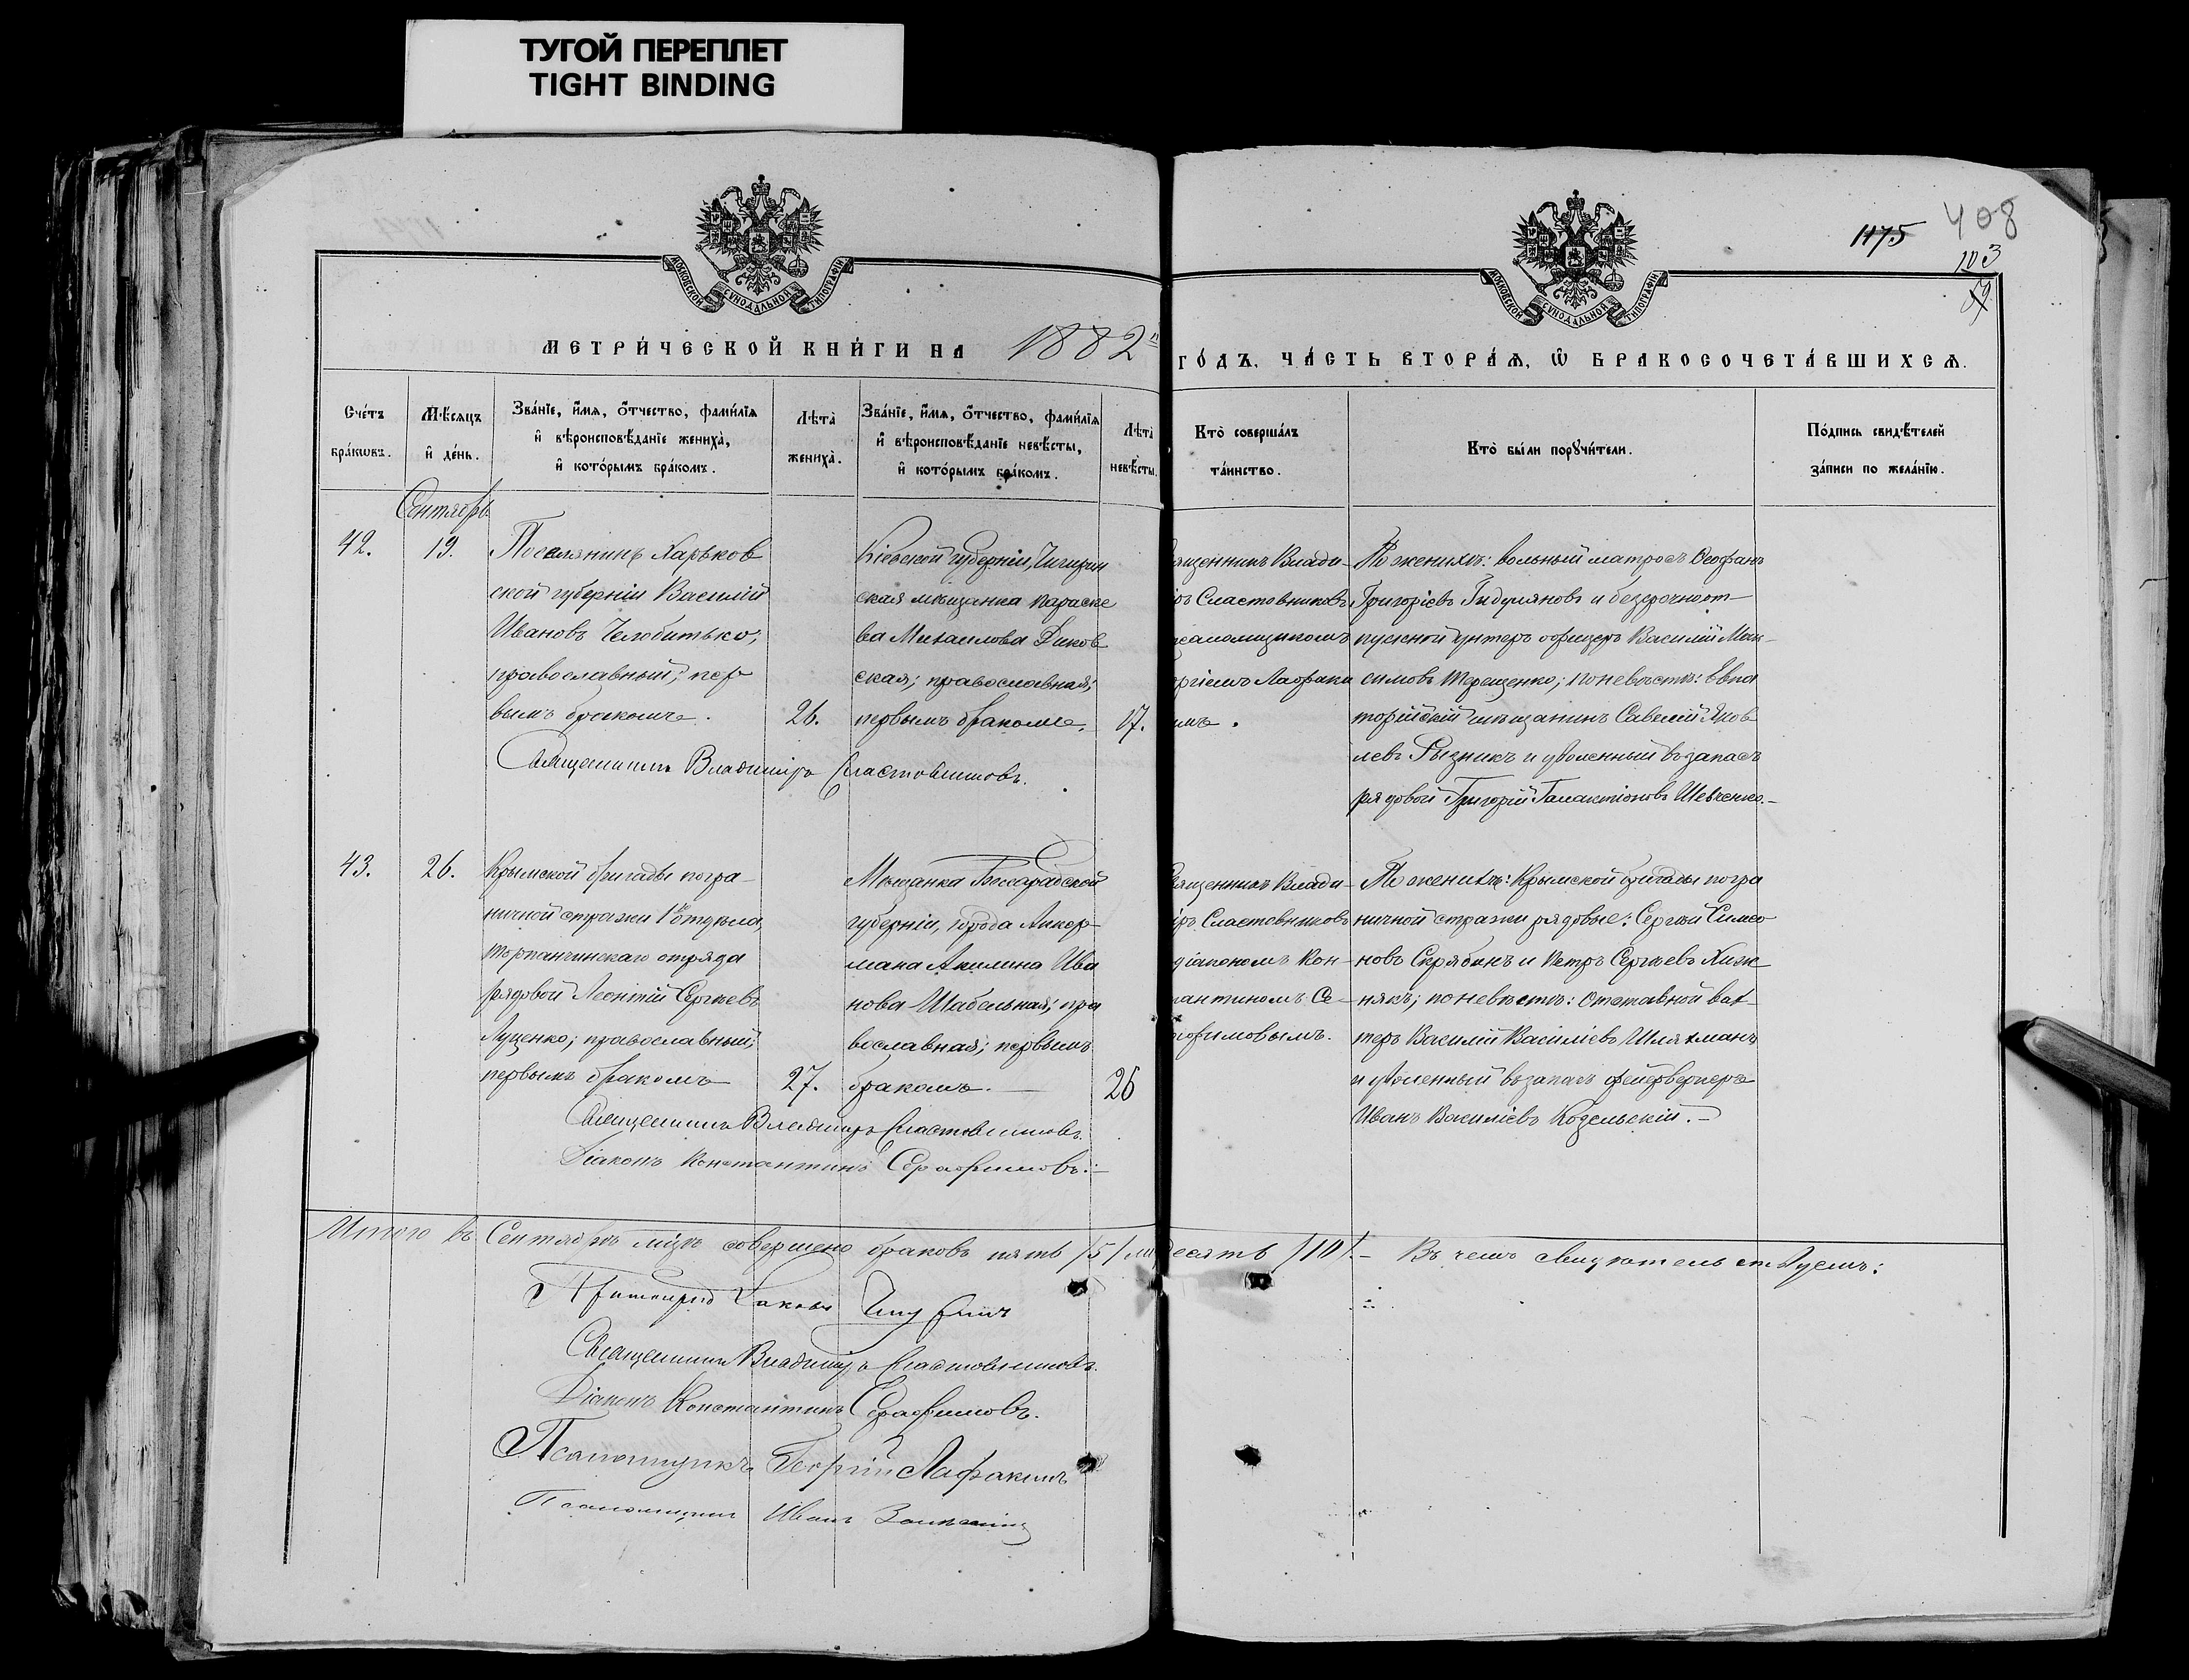 ТУГОЙ ПЕРЕПЛЕТ
TIGHT BINDING
МОСКОВСКОЙ СѴНОДАЛЬНОЙ ТИПОГРАФІИ
МОСКОВСКОЙ СѴНОДАЛЬНОЙ ТИПОГРАФІИ
1175
408
103
МЕТРИ́ЧЕСКОЙ КНИ́ГИ НА 1882
ГО́ДЪ, ЧА́СТЬ ВТОРА́Ѧ, Ѿ БРАКОСОЧЕТА́ВШИХСѦ.
Сче́тъ бра́кѡвъ.
Мѣ́сяцъ и҆ де́нь.
Зва́нїе, и҆́мя, о҆́тчество, фами́лїя и҆ вѣроисповѣ́данїе жениха̀, и҆ кото́рымъ бра́комъ.
Лѣта̀ жениха̀.
Зва́нїе, и҆́мя, о҆́тчество, фами́лїя и҆ вѣроисповѣ́данїе невѣ́сты, и҆ кото́рымъ бра́комъ.
Лѣта̀ невѣ́сты.
Кто̀ соверша́лъ та́инство.
Кто̀ бы́ли порꙋчи́тели.
По́дпись свидѣ́телей за́писи по жела́нїю.
Сентябрь
42.
19.
Поселянинъ Харьков
ской губерніи Василій
Ивановъ Челобитько;
православный; пер
вымъ бракомъ.
26.
Кіевской губерніи, Чигирин
ская мѣщанка Параске
ва Михаилова Диков
ская; православная;
первымъ бракомъ.
17.
ященникъ Влади-
іръ Сластовниковъ
саломщикомъ
ргіемъ Лафаки
имъ.
По женихѣ: вольный матросъ Ѳеофанъ
Григорьевъ Гидуляновъ и безсрочноот-
пускной унтеръ офицеръ Василій Мак-
симовъ Терещенко; по невѣстѣ: Евпа
торійскій мѣщанинъ Савелій Яков
левъ Рызникъ и уволенный въ запасъ
рядовой Григорій Галактіоновъ Шевченко.-
Священникъ Владиміръ Сластовниковъ.
43.
26.
Крымской бригады погра-
ничной стражи 1го отдѣла,
Тарханчинскаго отряда
рядовой Леонтій Сергѣевъ
Луценко; православный;
первымъ бракомъ
27.
Мѣщанка Бессарабской
губерніи, города Аккер-
мана Акилина Ива
нова Шабельная; пра
вославная; первымъ
бракомъ.
26
вященникъ Влади-
іръ Сластовниковъ
діакономъ Кон-
антиномъ Се-
афимовымъ.
По женихѣ: Крымской бригады погра
ничной стражи рядовые: Сергѣй Симео
новъ Скрябинъ и Петръ Сергѣевъ Хиж
някъ; по невѣстѣ: Отставной вах-
теръ Василій Василіевъ Шляхманъ
и уволенный въ запасъ фейерверкеръ
Иванъ Василіевъ Козельскій.-
Священникъ Владиміръ Сластовниковъ.
Діаконъ Константинъ Серафимовъ.-
Итого въ Сентябрѣ мцѣ совершено браковъ пять /5/ ли десять /10/.- Въ чемъ свидѣтельствуемъ:
Священникъ Владиміръ Сластовниковъ.
Діаконъ Константинъ Серафимовъ.
Псаломщикъ Георгій Лафакинъ
Псаломщикъ Иванъ